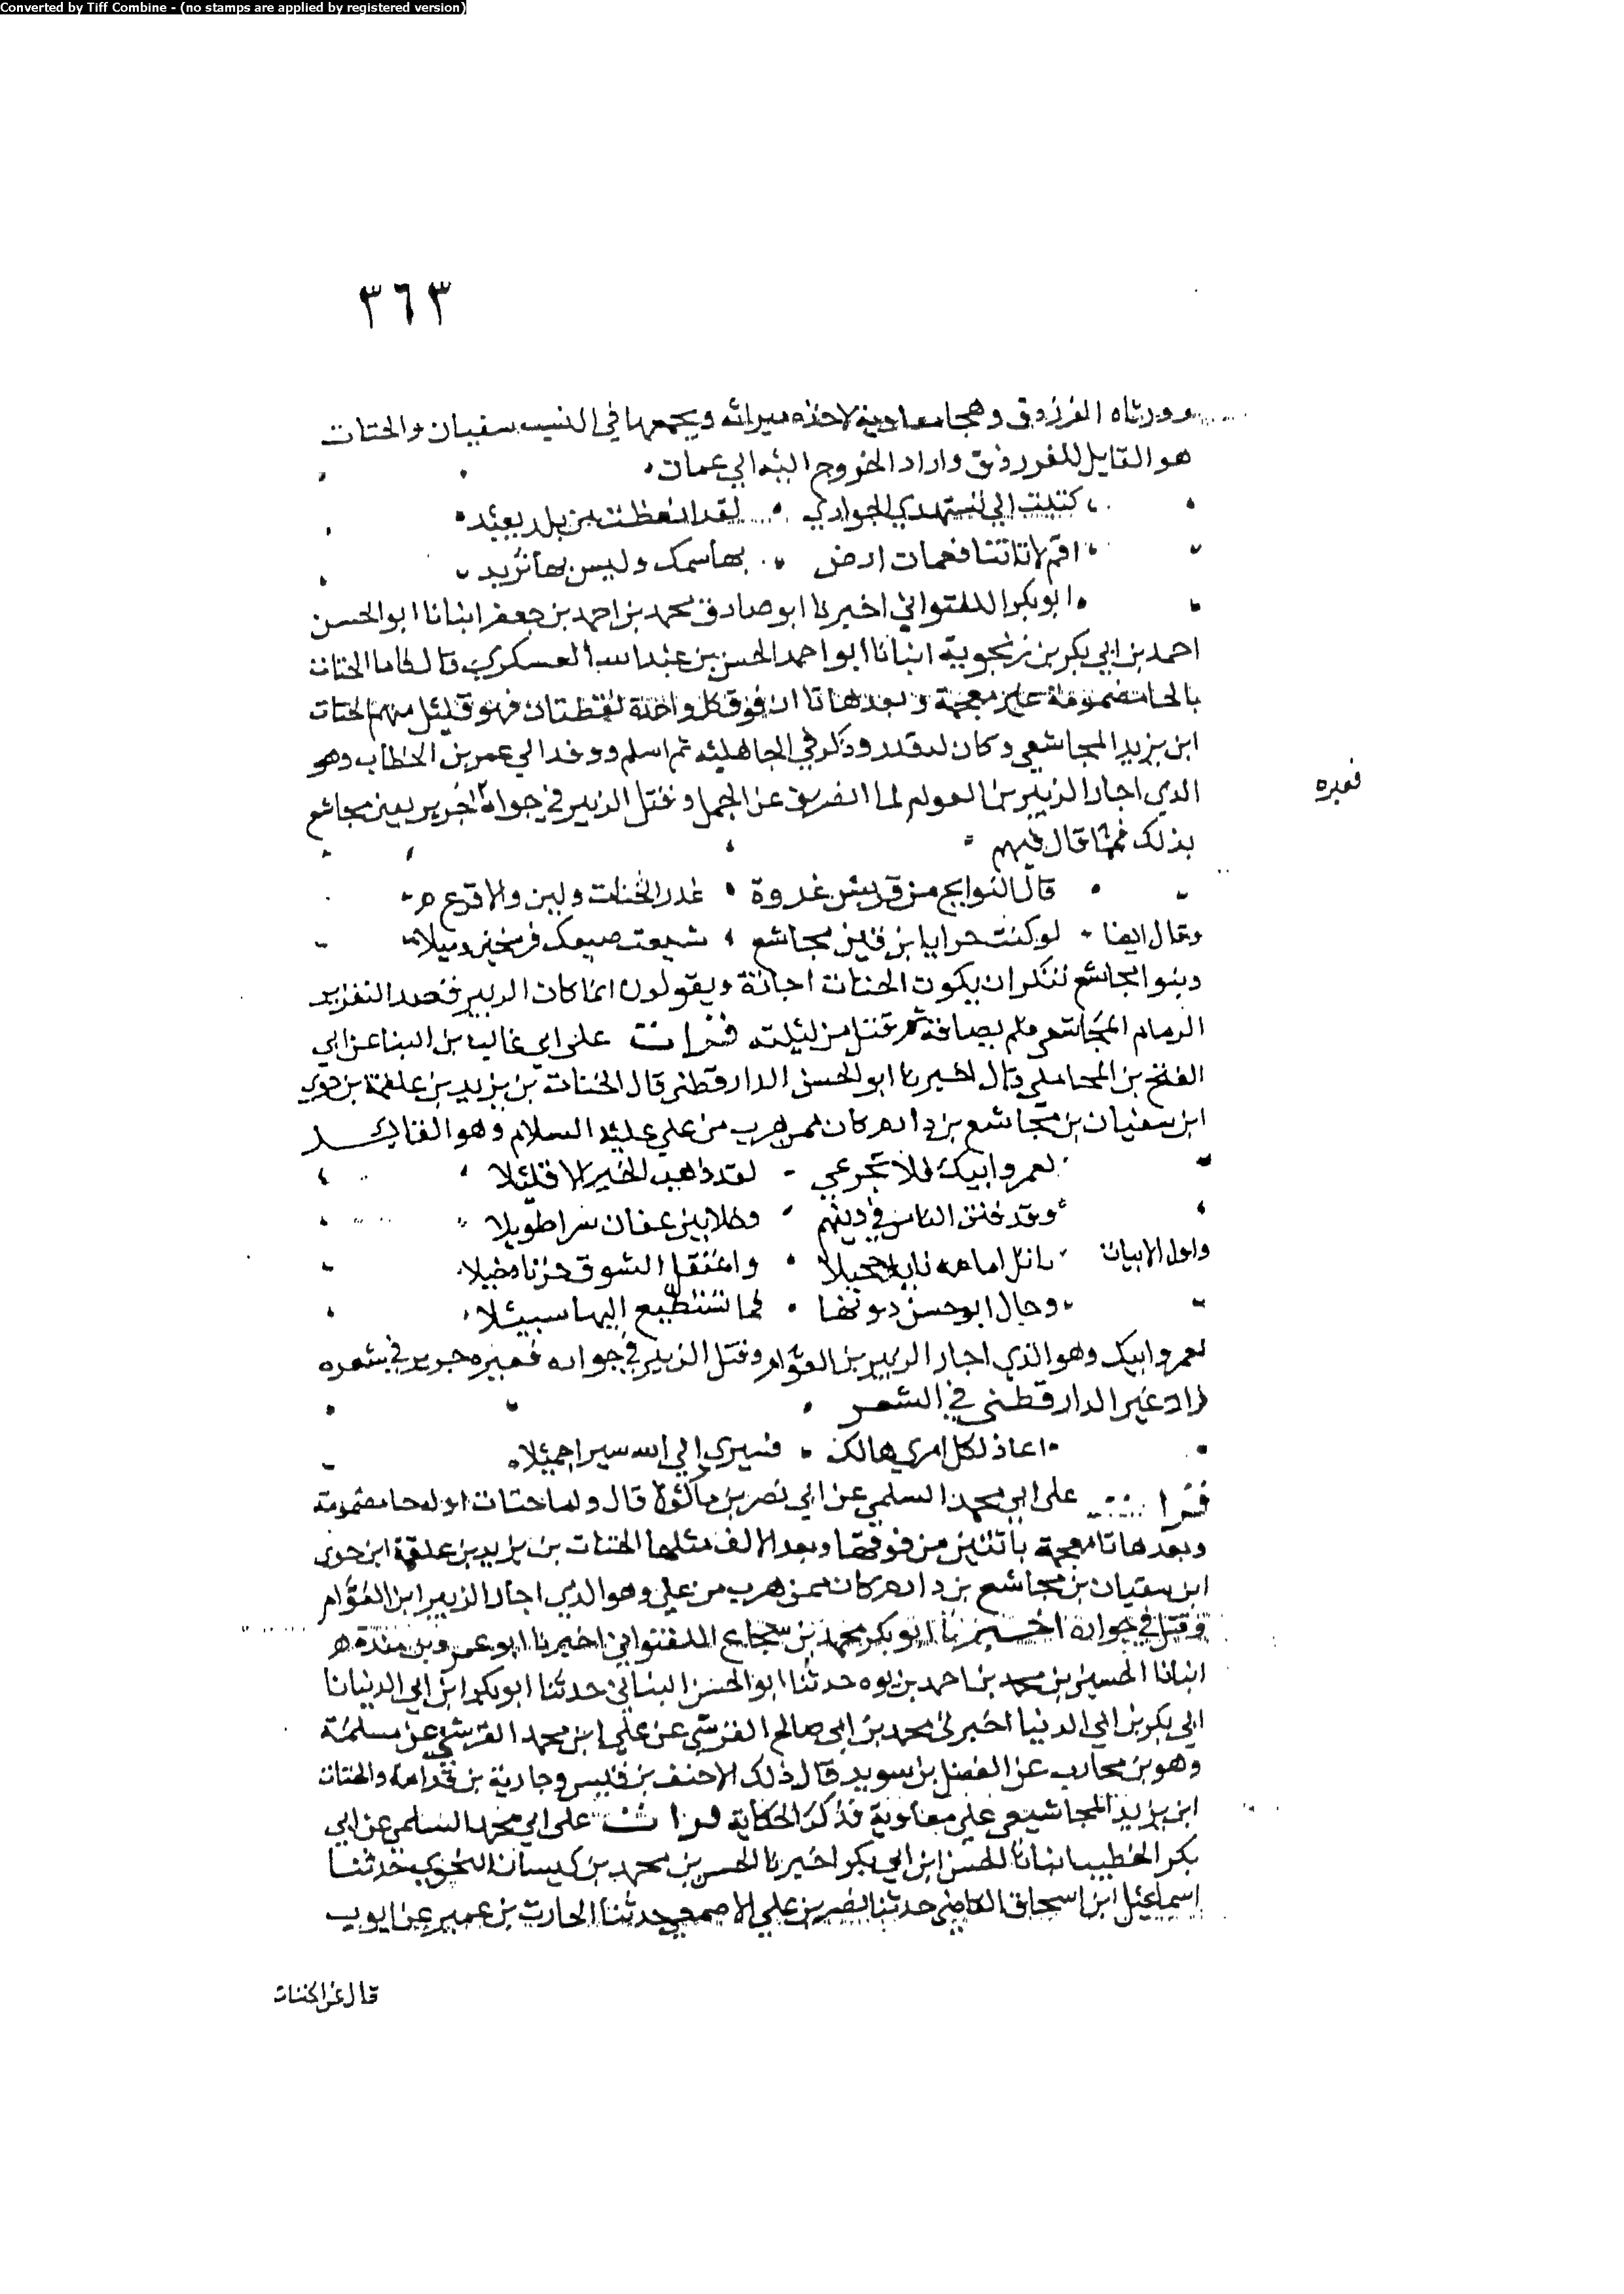 Converted by Tiff Combine - (no stamps are applied by registered version)
٣٦٣
ورثاه الفرزدق وهجا معاوية لاخذه ميراثه ويجمعها في النسب سفيان والحتات
هو القايل للفرزدق واراد الخروج اليه الي عمان
كتبت الي تستهدي الجواري لقد انعظت من بلد بعيد
اقم لا تاتنا فعمان ارض بها سمك وليس بها ثريد
ابو بكر اللفتواني اخبرنا ابو صادق محمد بن احمد بن جعفر انبانا ابو الحسن
احمد بن ابي بكر بن زنجوية انبانا ابو احمد الحسن بن عبد الله العسكري قال فاما الحتات
بالحا مضمومة غير معجمة وبعدها تاان فوق كل واحدة نقطتان فهو قليل منهم الحتات
ابن يزيد المجاشعي وكان له قدر وذكر في الجاهلية ثم اسلم ووفد الي عمر بن الخطاب وهو
الذي اجار الزبير بن العوام لما انصرف عن الجمل وقتل الزبير في جواره جرير يعير مجاشع
فعيره
بذلك فمما قال فيهم
قال النوايح من قريش غدوة غدر الحتات ولين والاقرع
وقال ايضا لو كنت حرا يا ابن قين مجاشع شيعت ضيفك فرسخين وميلا
وبنو مجاشع تنكر ان يكون الحتات اجاره ويقولون انما كان الزبير قصد النعر بن
الزمام المجاشعي فلم يصادفه ثم قتل من ليلته قرات على ابي غالب بن البنا عن ابي
الفتح بن المحاملي قال اخبرنا ابو الحسن الدارقطني قال الحتات بن يزيد بن علقمة بن حوي
ابن سفيان بن مجاشع بن دارم كان ممن هرب من علي عليه السلام وهو القايل
لعمرو ابيك فلا تجزعي لقد ذهب الخير الا قليلا
وقد فتن الناس في دينهم وخلا بن عفان شرا طويلا
واول الابيات نأتك امامة نايا جميلا واعتقل الشوق حزنا دخيلا
وحال ابو حسن دونها فما تستطيع اليها سبيلا
لعمرو ابيك وهو الذي اجار الزبير بن العوام وقتل الزبير في جواره فعيره جرير في شعره
زاد غير الدارقطني في الشعر
اعاذل كل امري هالك فسيري الي الله سيرا جميلا
قرات على ابي محمد السلمي عن ابي نصر بن ماكولا قال واما حتات اوله حا مضمومة
وبعدها تا معجمة باثنتين من فوقها وبعد الالف مثلها الحتات بن يزيد بن علقمة ابن حوى
ابن سفيان بن مجاشع بن دارم كان ممن هرب من علي وهو الذي اجار الزبير ابن العوام
وقتل في جواره اخبرنا ابو بكر محمد بن شجاع اللفتواني اخبرنا ابو عمرو بن مندة
انبانا الحسين بن محمد بن احمد بن يوه حدثنا ابو الحسن البناني حدثنا ابو بكر ابن ابي الدنيا نا
ابي بكر بن ابي الدنيا اخبرني محمد بن ابي صالح القرشي عن علي ابن محمد القرشي عن مسلمة
وهو بن محارب عن الفضل بن سويد قال ذلك الاحنف بن قيس وجارية بن قدامة والحتات
ابن يزيد المجاشعي على معاوية فذكر الحكاية قرات على ابي محمد السلمي عن ابي
بكر الخطيب انبانا الحسن ابن ابي بكر اخبرنا الحسن بن محمد بن كيسان النحوي حدثنا
اسماعيل ابن اسحاق القاضي حدثنا نصر بن علي الاصمعي حدثنا الحارث بن عمير عن ايوب
قال عن الحتات